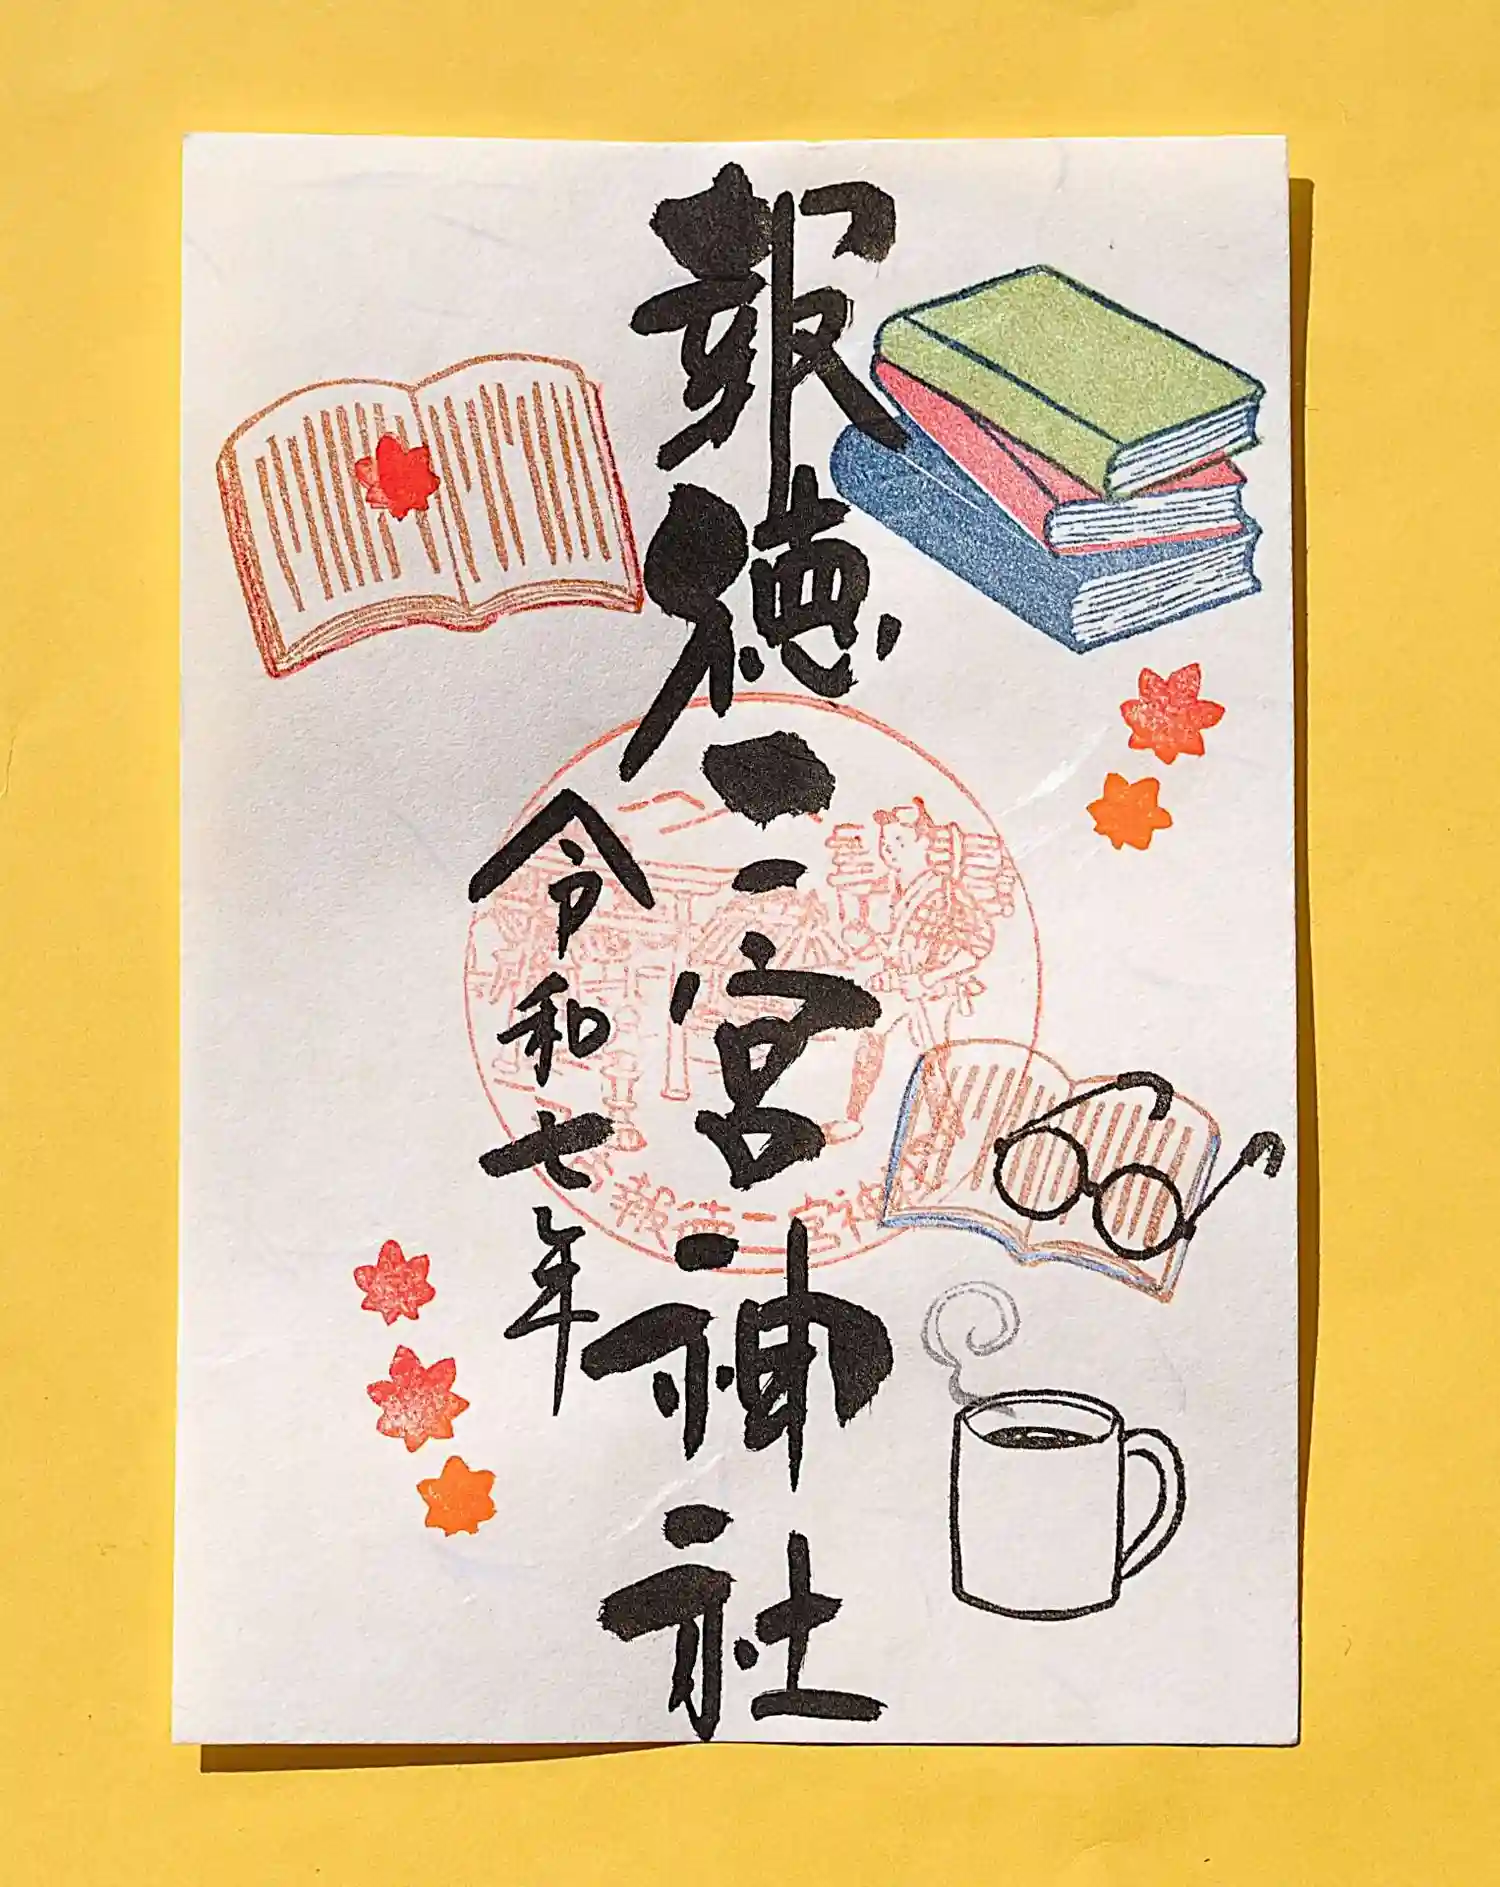 報徳二宮神社
令和七年
報徳二宮神社